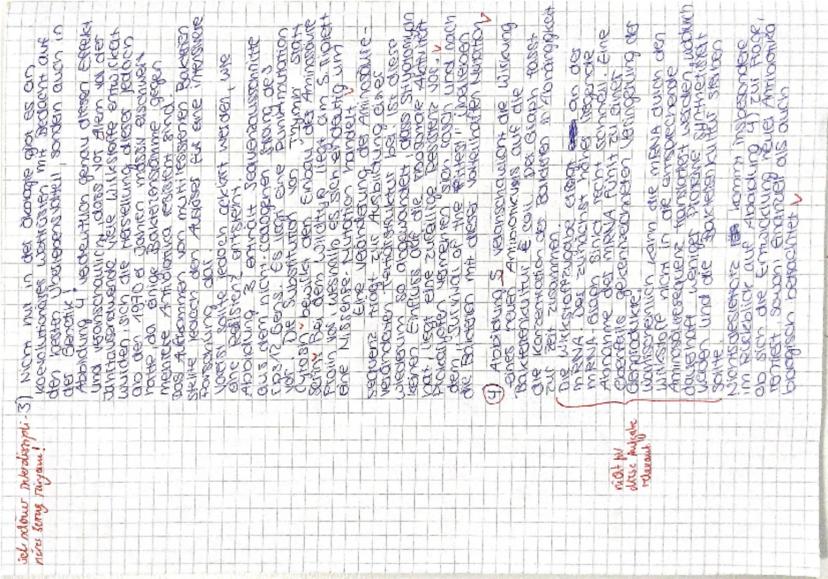 sehr schöner Interdiszipli-
närer Bezug
3) Nicht nur in der Ökologie gibt es ein
koevolutionäres Wettrüsten mit Bedacht auf
den besten Überlebensvorteil, sondern auch in
der Genetik!
Abbildung 4 verdeutlicht genau diesen Effekt
und veranschaulicht, dass vor allem vor der
Jahrtausendwende viele Wirkstoffe entwickelt
wurden, sich die Herstellung dieser jedoch
ab den 1970er Jahren massiv
hatte, da einige Bakterienstämme gegen
mehrere Antibiotika resistent sind.
Das Aufkommen von multiresistenten Bakterien
stellte jedoch den Auslöser für eine intensivere
Forschung dar.
Vorerst sollte jedoch geklärt werden, wie
eine Resistenz entsteht.
Abbildung 3 enthält Sequenzausschnitte
aus dem nicht-codogenen Strang des
Gens. Es liegt eine Punktmutation
vor. Die Substitution von Thymin statt
Cytosin bewirkt den Einbau der Aminosäure
Bei dem Wildtyp liegt am S. Triplett
vor, weshalb es sich eindeutig um
eine Missense-Mutation handelt.
Eine Veränderung der Aminosäure-
sequenz führt zur Ausbildung einer
veränderten Tertiärstruktur bei
wiederum so abgewandelt, dass Streptomycin
keinen Einfluss auf die ribosomale Aktivität
hat, liegt eine zufällige Resistenz vor.
Prokaryoten vermehren sich rasch und nach
dem "Survival of the fittest" überleben
die Bakterien mit dieser vorteilhaften Mutation
4) Abbildung 5 veranschaulicht die Wirkung
eines neuen Antibiotikums auf die
Bakterienkultur E. coli. Der Graph fasst
die Konzentration des Bakterien in Abhängigkeit
zur Zeit zusammen.
Die Wirkstoffzugabe erfolgt an der
mRNA. Der zunächst höher liegende
mRNA Graph sinkt recht schnell. Eine
Abnahme der mRNA führt zu einer
ebenfalls gekennzeichneten Verringerung der
Wahrscheinlich kann die mRNA durch den
Wirkstoff nicht in die entsprechende
Aminosäuresequenz translatiert werden, wodurch
dauerhaft weniger Proteine synthetisiert
werden und die Bakterienkultur sterben
sollte.
nicht für
diese Aufgabe
relevant
Nichtsdestotrotz kommt insbesondere
im Rückblick auf Abbildung 4) zur Frage,
ob sich die Entwicklung neuer Antibiotika
rentiert, sowohl finanziell als auch
biologisch betrachtet